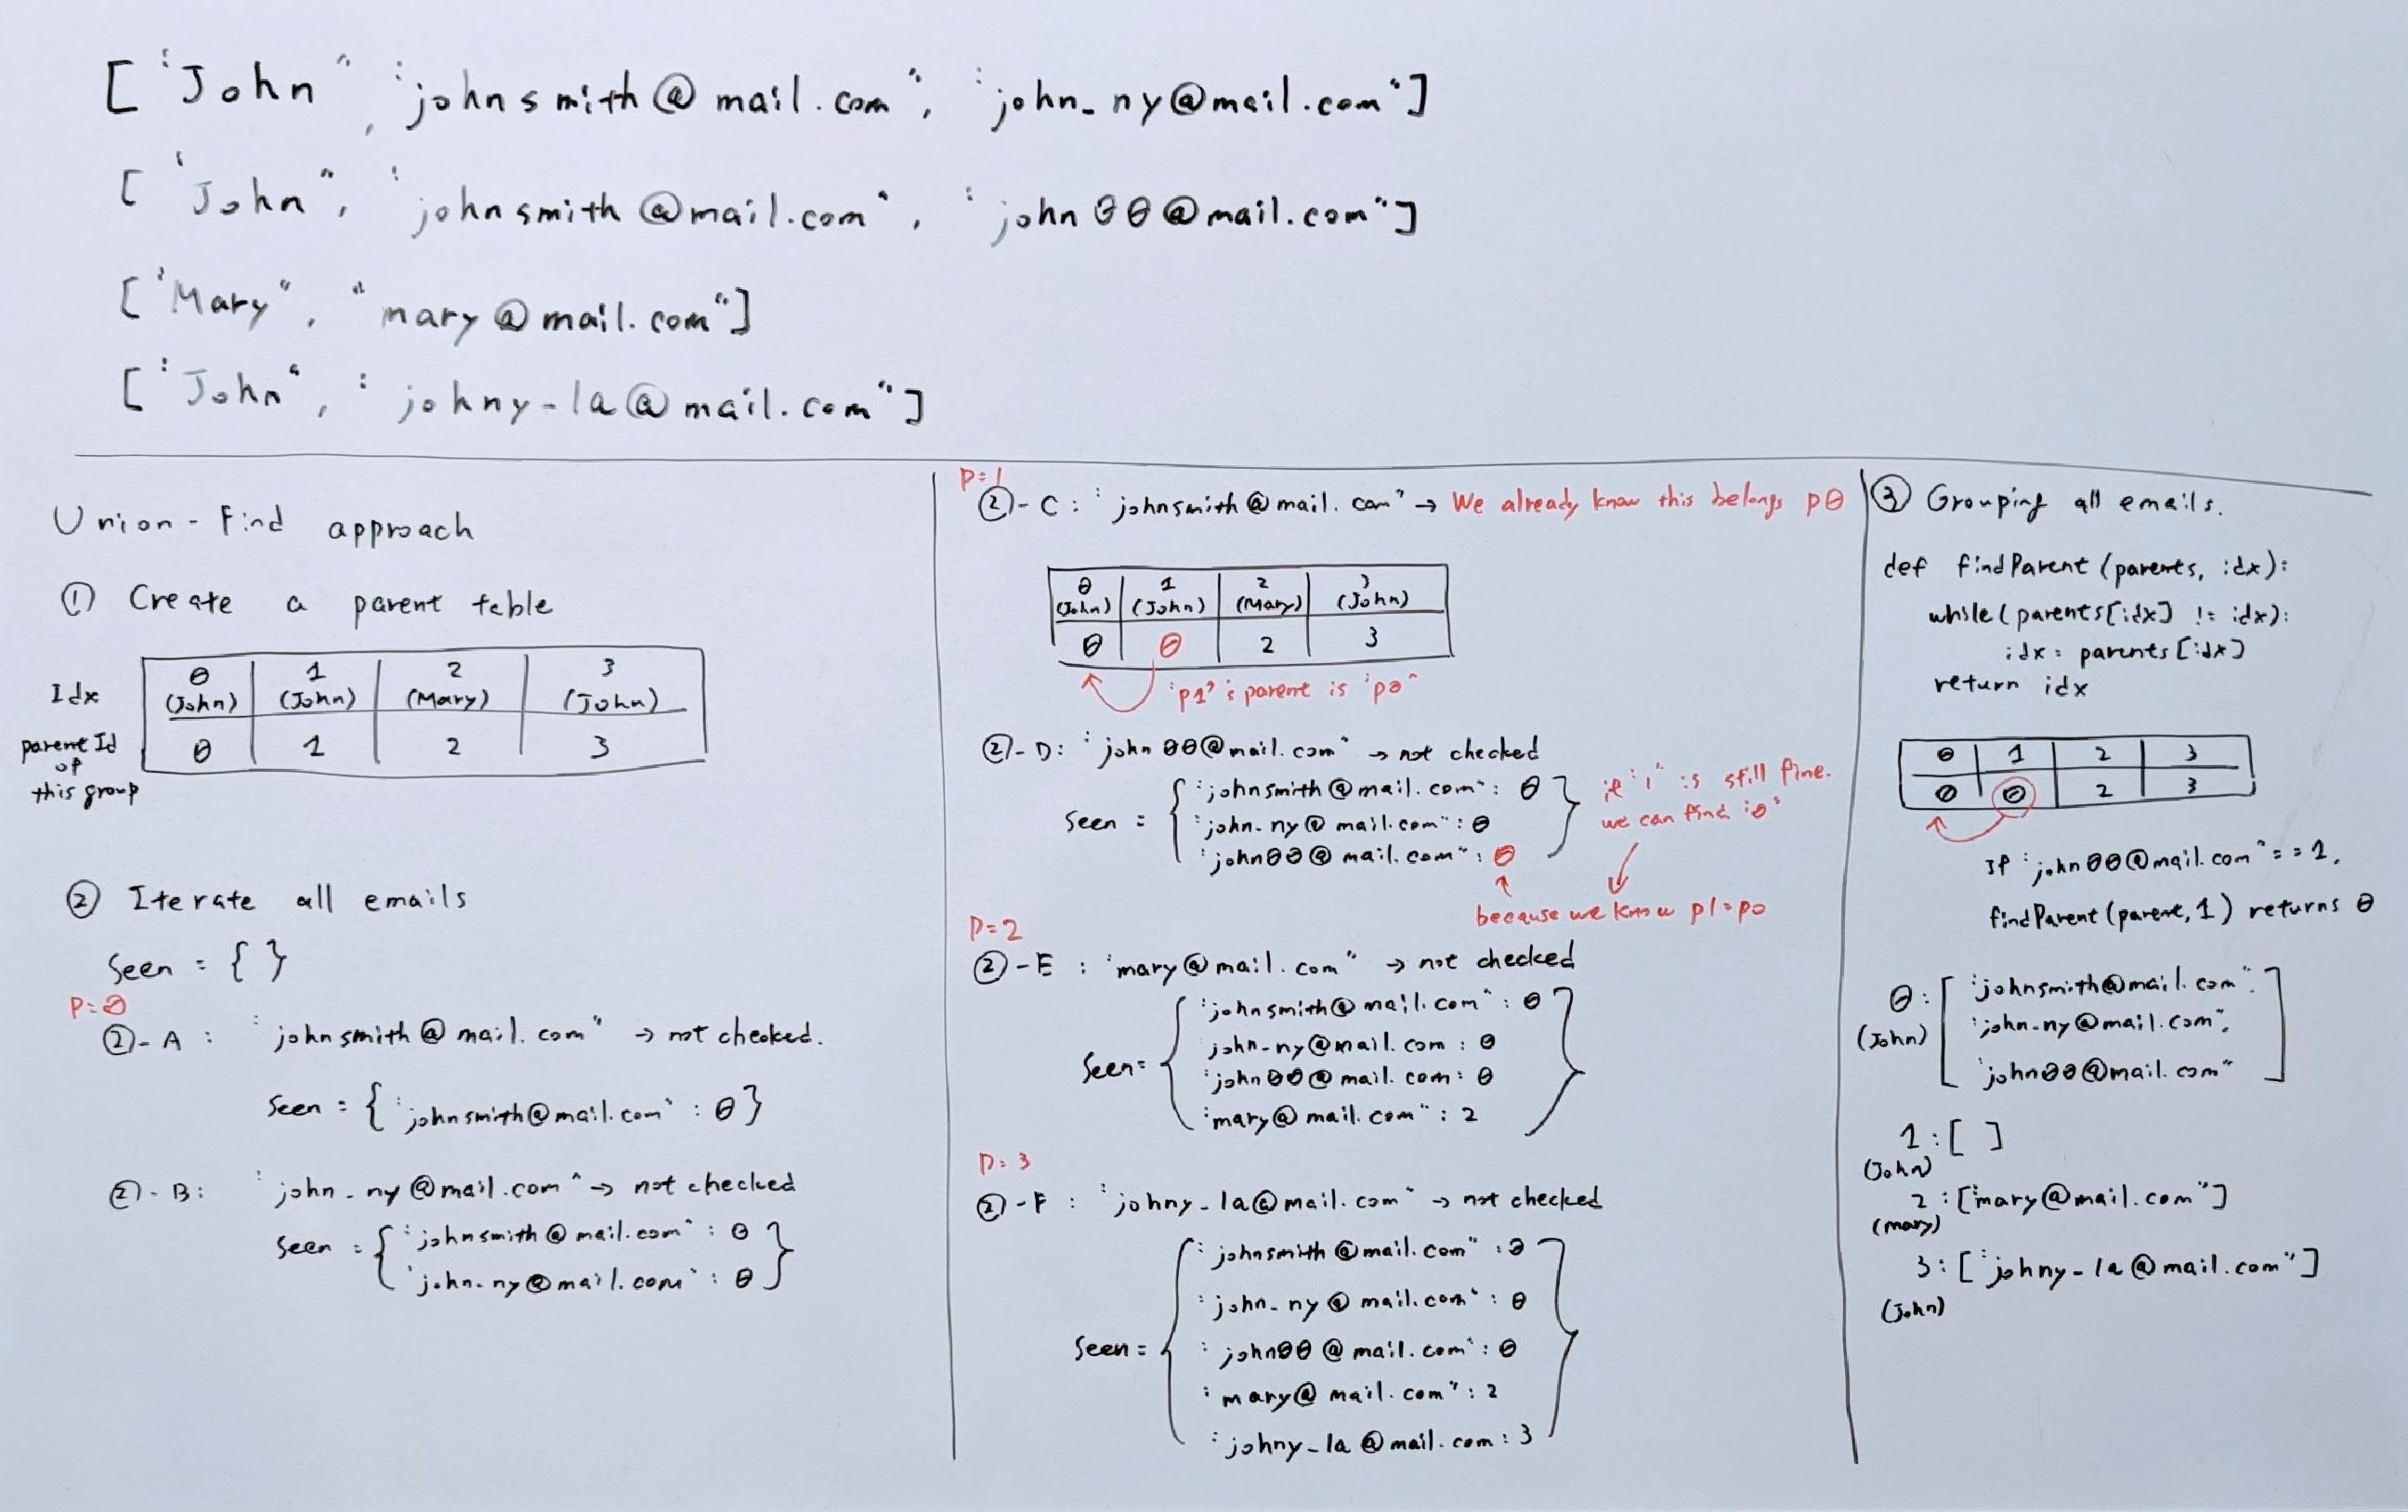 ["John", "johnsmith@mail.com", "john_ny@mail.com"]
["John", "johnsmith@mail.com", "john00@mail.com"]
["Mary", "mary@mail.com"]
["John", "johny-la@mail.com"]
Union-Find approach
① Create a parent table
Idx 0 1 2 3
(John) (John) (Mary) (John)
parent Id of this group 0 1 2 3
② Iterate all emails
Seen = { }
P=0
②-A : "johnsmith@mail.com" → not checked.
Seen = {"johnsmith@mail.com" : 0}
②-B: "john_ny@mail.com" → not checked
Seen = {"johnsmith@mail.com" : 0
"john_ny@mail.com" : 0}
P=1
②-C : "johnsmith@mail.com" → We already know this belongs p0
0 1 2 3
(John) (John) (Mary) (John)
0 0 2 3
"p1"'s parent is "p0"
②-D: "john00@mail.com" → not checked
Seen = {"johnsmith@mail.com" : 0
"john_ny@mail.com" : 0
"john00@mail.com" : 0}
if "1" is still fine.
we can find "0"
because we know p1=p0
P=2
②-E : "mary@mail.com" → not checked
Seen = {"johnsmith@mail.com" : 0
john_ny@mail.com : 0
"john00@mail.com : 0
"mary@mail.com" : 2}
P=3
②-F : "johny_la@mail.com" → not checked
Seen = {"johnsmith@mail.com" : 0
"john_ny@mail.com" : 0
"john00@mail.com" : 0
"mary@mail.com" : 2
"johny_la@mail.com : 3}
③ Grouping all emails.
def findParent(parents, idx):
while(parents[idx] != idx):
idx = parents[idx]
return idx
0 1 2 3
0 0 2 3
If "john00@mail.com" == 1,
findParent(parent, 1) returns 0
0 : ["johnsmith@mail.com",
(John) "john_ny@mail.com",
"john00@mail.com"]
1 : [ ]
(John)
2 : ["mary@mail.com"]
(mary)
3 : ["johny_la@mail.com"]
(John)